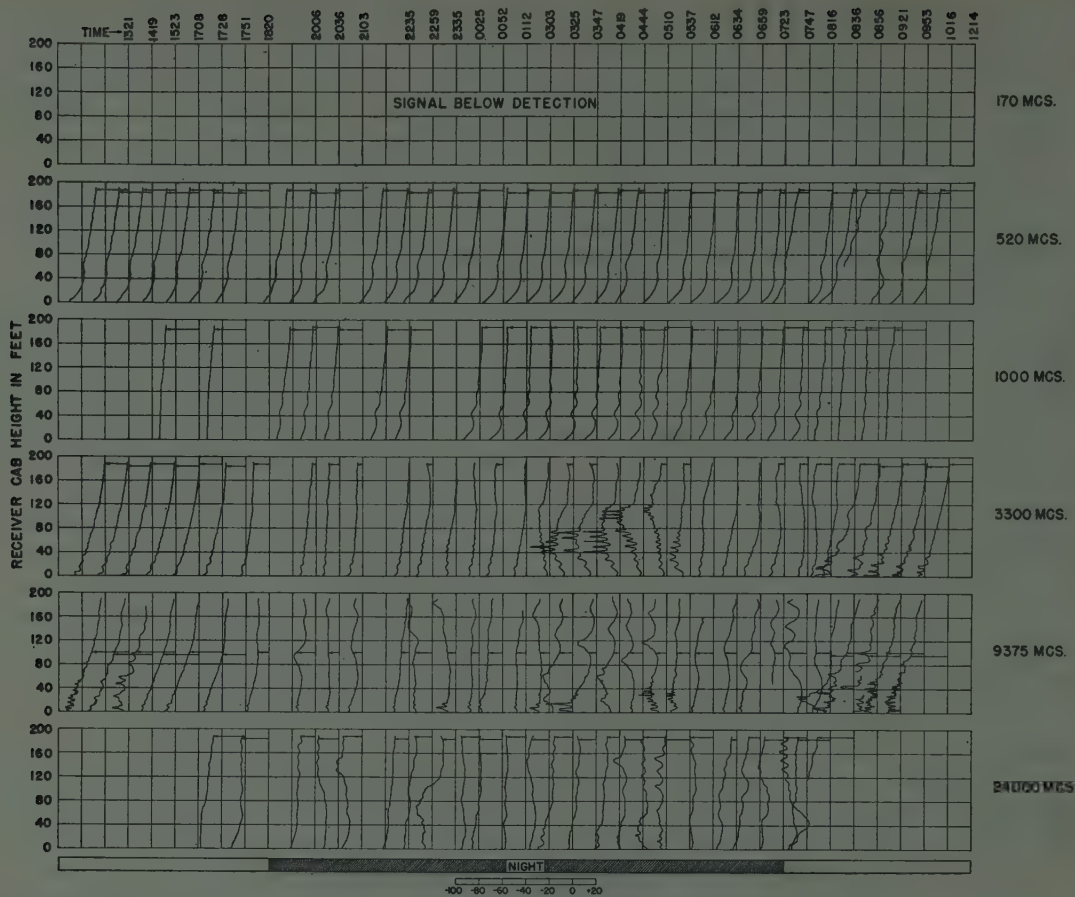 TIME→ 1321 1419 1523 1708 1728 1751 1820 2006 2036 2103 2235 2259 2335 0025 0052 0112 0303 0325 0347 0419 0444 0510 0537 0612 0634 0659 0723 0747 0816 0836 0856 0921 0953 1016 1214
RECEIVER CAB HEIGHT IN FEET
200
160
120
80
40
0
SIGNAL BELOW DETECTION
170 MCS.
200
160
120
80
40
0
520 MCS.
200
160
120
80
40
0
1000 MCS.
200
160
120
80
40
0
3300 MCS.
200
160
120
80
40
0
9375 MCS.
200
160
120
80
40
0
24000 MCS
NIGHT
-100 -80 -60 -40 -20 0 +20